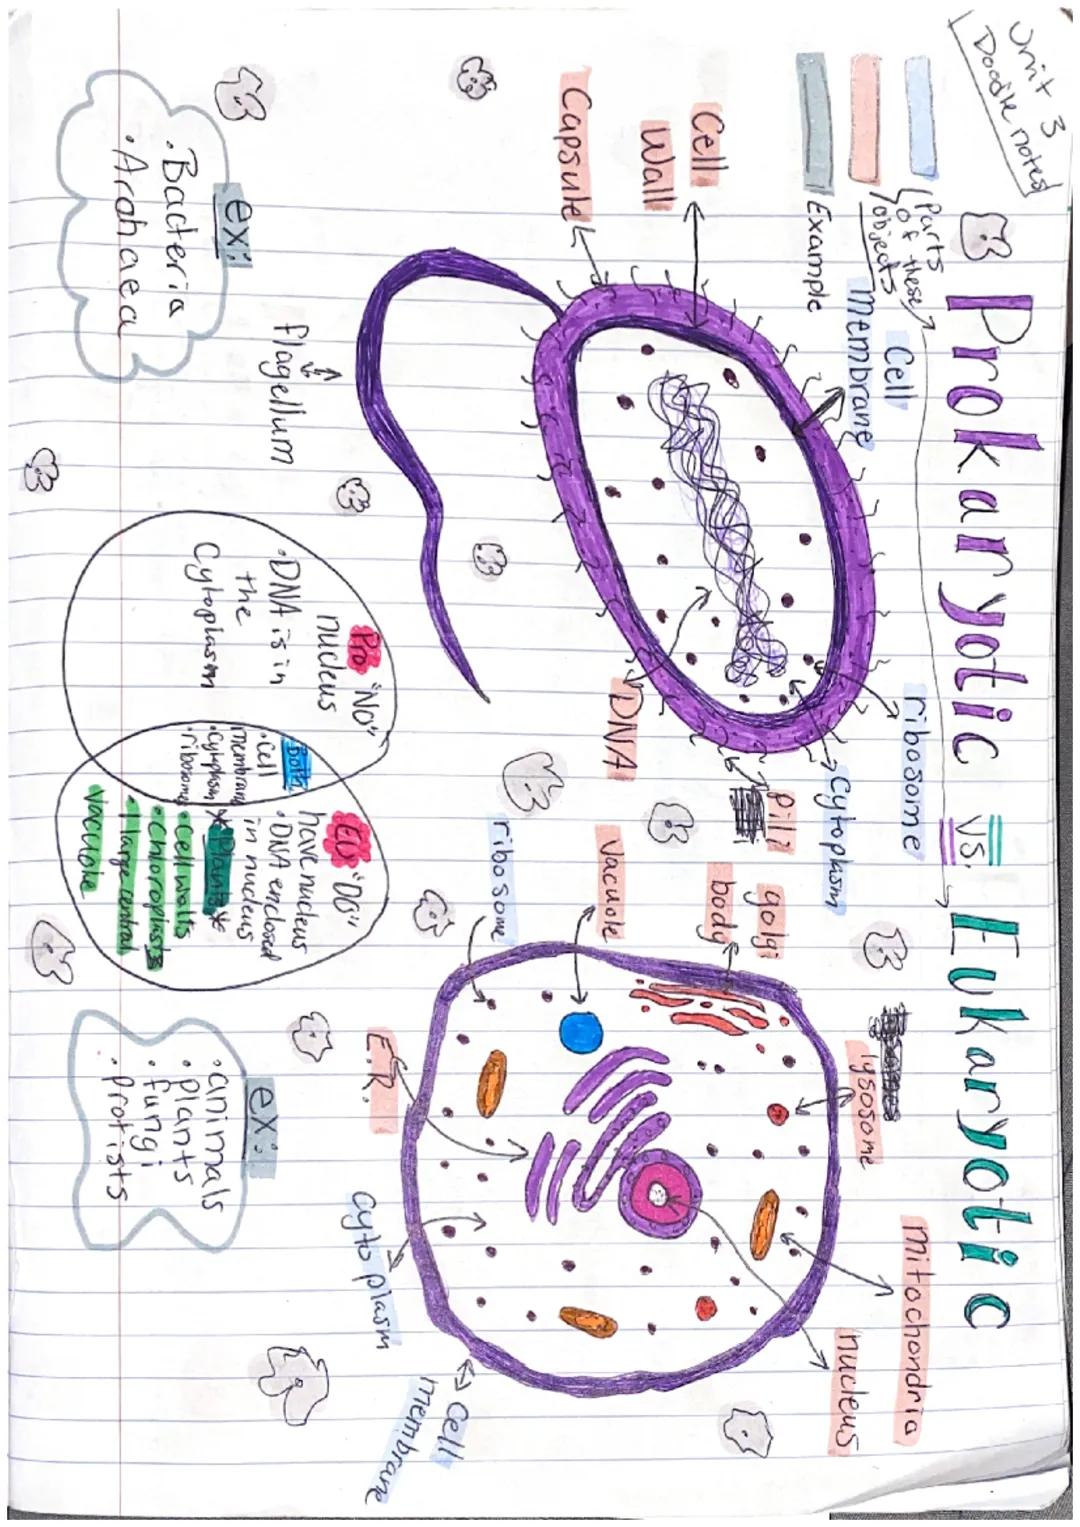 Unit 3
Doodle notes
Prokaryotic vs. Eukaryotic
Parts
of these
objects
Example
Cell
membrane
Cell
Wall
Capsule
ribosome
cytoplasm
pili
DNA
flagellum
ex:
• Bacteria
• Archaea
Pro "No"
nucleus
• DNA is in
the
Cytoplasm
Both
• cell
membrane
• cytoplasm
• ribosomes
Eu "DO"
have nucleus
• DNA enclosed
in nucleus
*Plants*
• Cell walls
• Chloroplasts
• 1 large central
Vacuole
golgi
body
Vacuole
ribosome
lysosome
mitochondria
nucleus
E.R.
cytoplasm
Cell
membrane
ex:
• animals
• plants
• fungi
• protists